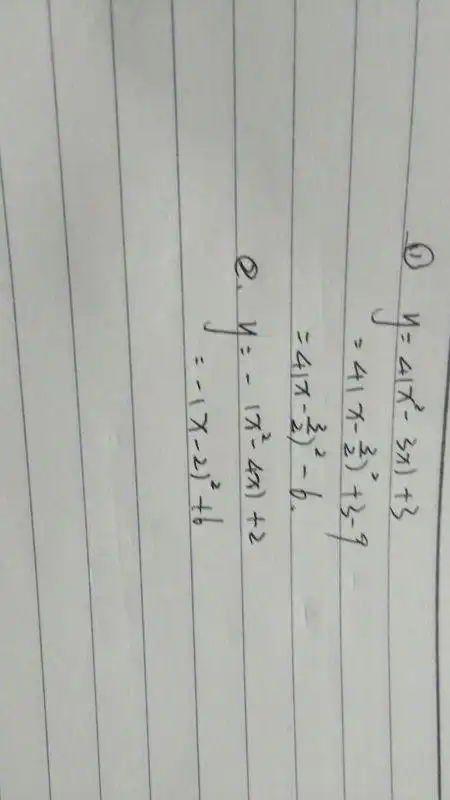 ① y = 4(x² - 3x) + 3
= 4(x - 3/2)² + 3 - 9
= 4(x - 3/2)² - 6.
②. y = -(x² - 4x) + 2
= -(x - 2)² + 6